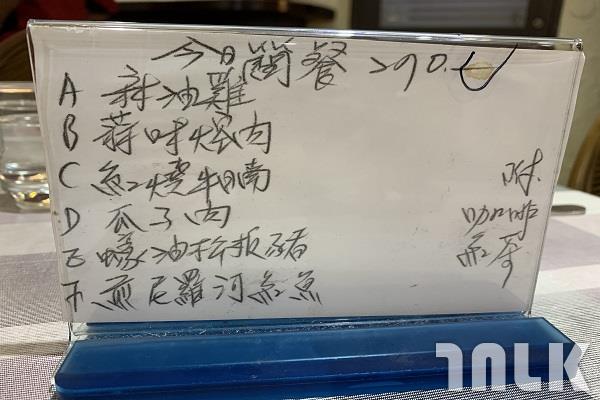 今日簡餐 290.
A 麻油雞
B 蒜味焢肉
C 紅燒牛腩
D 瓜子肉
E 蠔油松板豬
F 煎尼羅河紅魚
附
咖啡
紅茶
TNLK